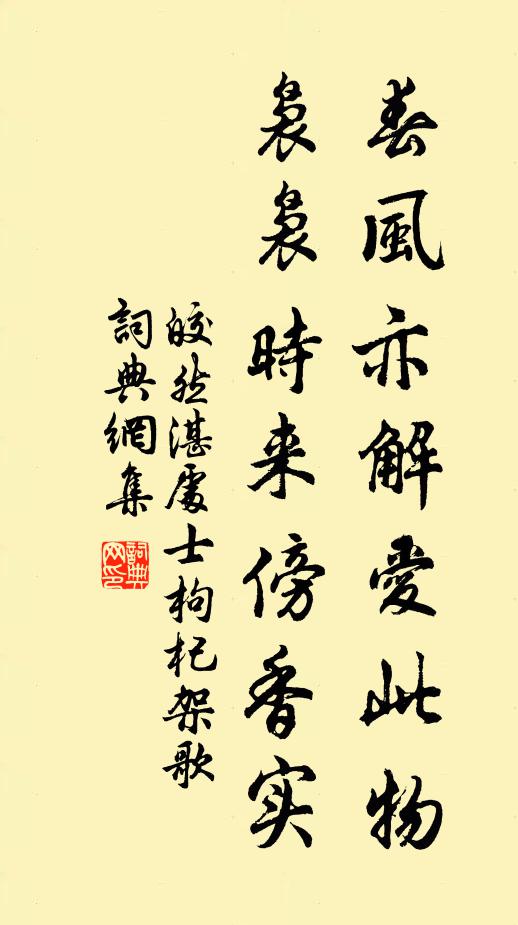 春風亦解愛此物
袅袅時来傍香实
皎然湛處士枸杞架歌
詞典網集
詞典网印